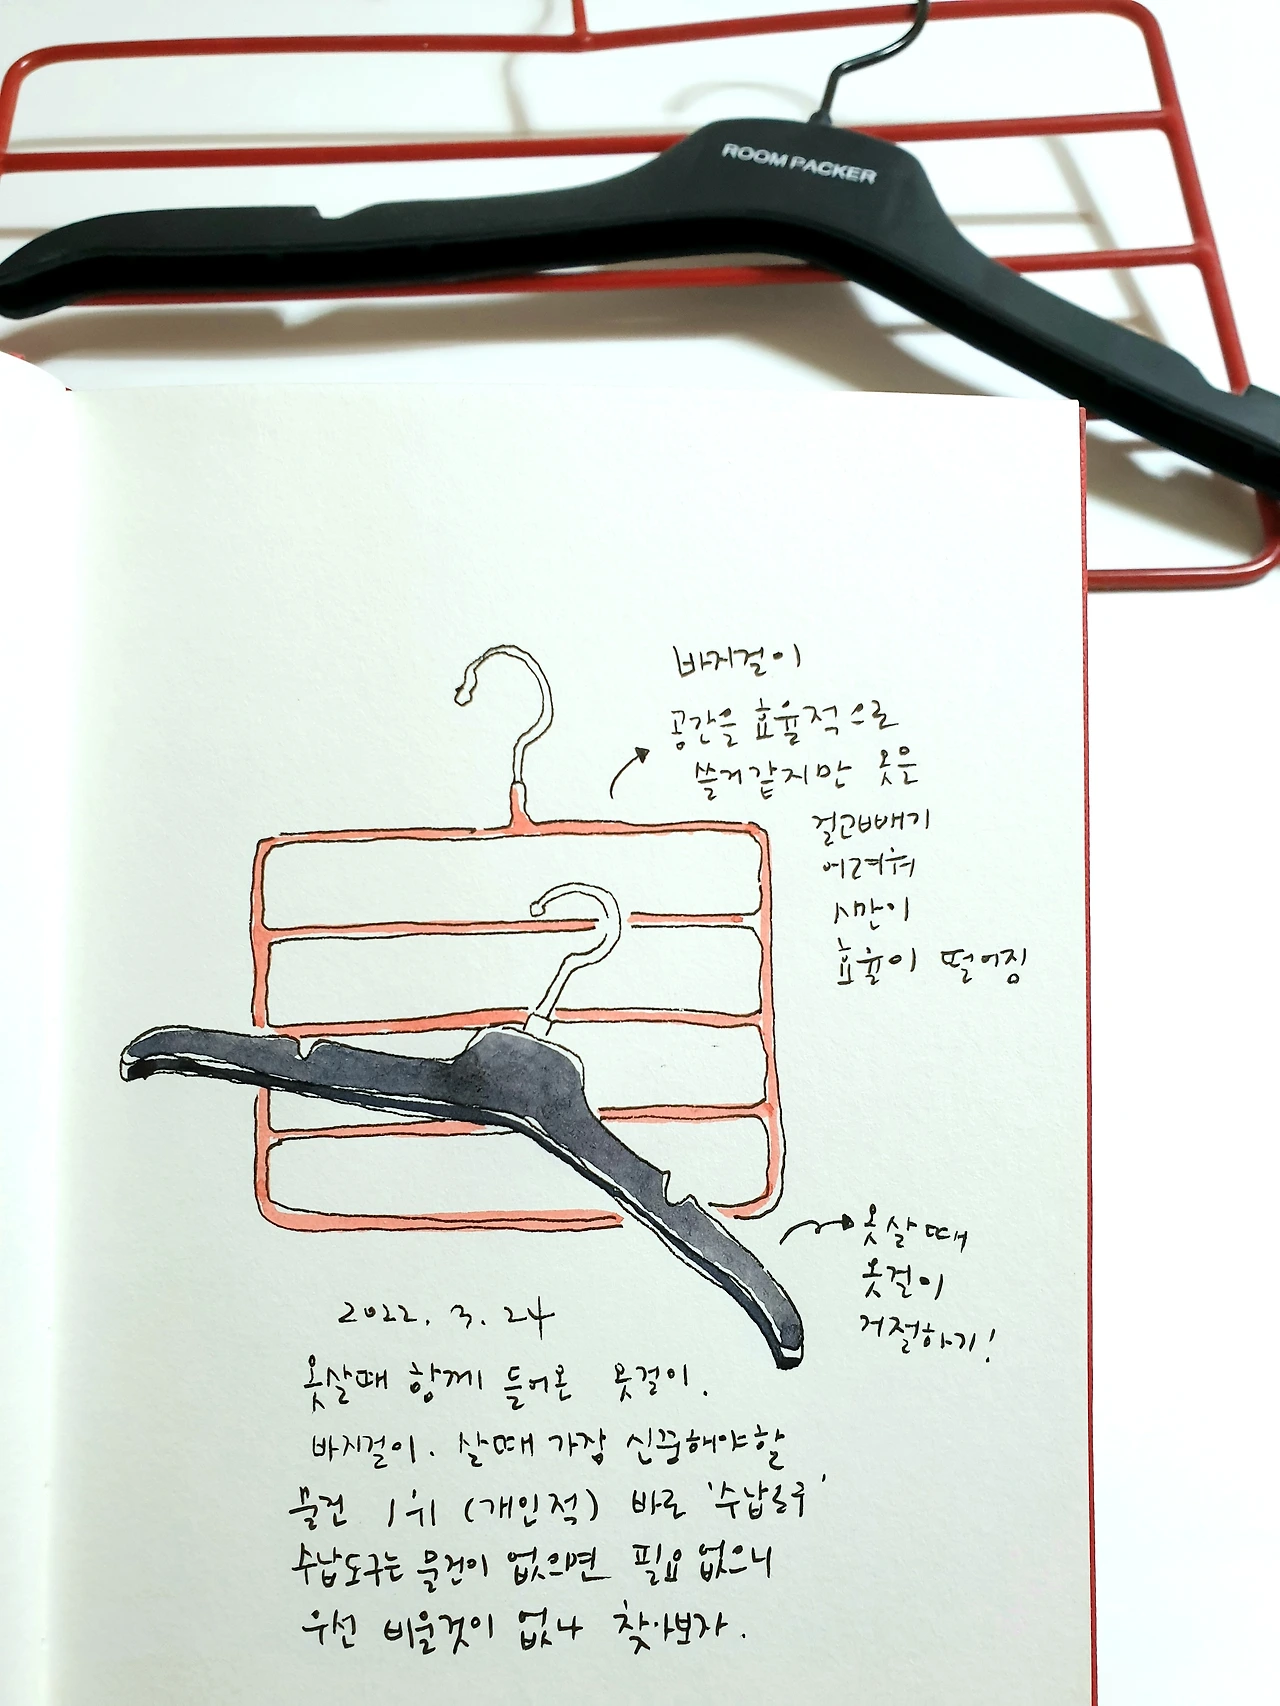 ROOM PACKER
바지걸이
공간을 효율적으로
쓸거같지만 옷은
걸고빼기
어려워
시간이
효율이 떨어짐
옷살때
옷걸이
거절하기!
2022. 3. 24
옷살때 함께 들어온 옷걸이.
바지걸이. 살때 가장 신중해야할
물건 1위 (개인적) 바로 '수납도구'
수납도구는 물건이 없으면 필요없으니
우선 비울것이 없나 찾아보자.